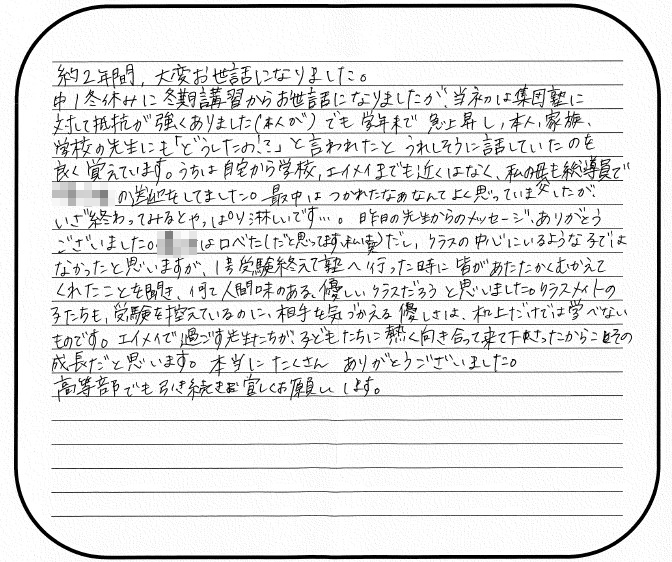 約2年間、大変お世話になりました。
中1冬休みに冬期講習からお世話になりましたが、当初は集団塾に
対して抵抗が強くありました(本人が)でも学年末で急上昇し、本人、家族、
学校の先生にも「どうしたの!?」と言われたとうれしそうに話していたのを
良く覚えています。うちは自宅から学校、エイメイまでも近くはなく、私の母も総導員で
の送迎をしてました。最中はつかれたなぁなんてよく思っていましたが、
いざ終わってみるとやっぱり淋しいです…。昨日の先生からのメッセージ、ありがとう
ございました。は口ベた(だと思ってます私達)だし、クラスの中心にいるような子では
なかったと思いますが、1号受験終えて塾へ行った時に皆があたたかくむかえて
くれたことを聞き、何て人間味のある、優しいクラスだろうと思いました。クラスメイトの
子たちも、受験を控えているのに、相手を気づかえる優しさは、机上だけでは学べない
ものです。エイメイで過ごす先生たちが、子どもたちに熱く向き合って来て下さったからこその
成長だと思います。本当にたくさんありがとうございました。
高等部でも引き続き宜しくお願いします。